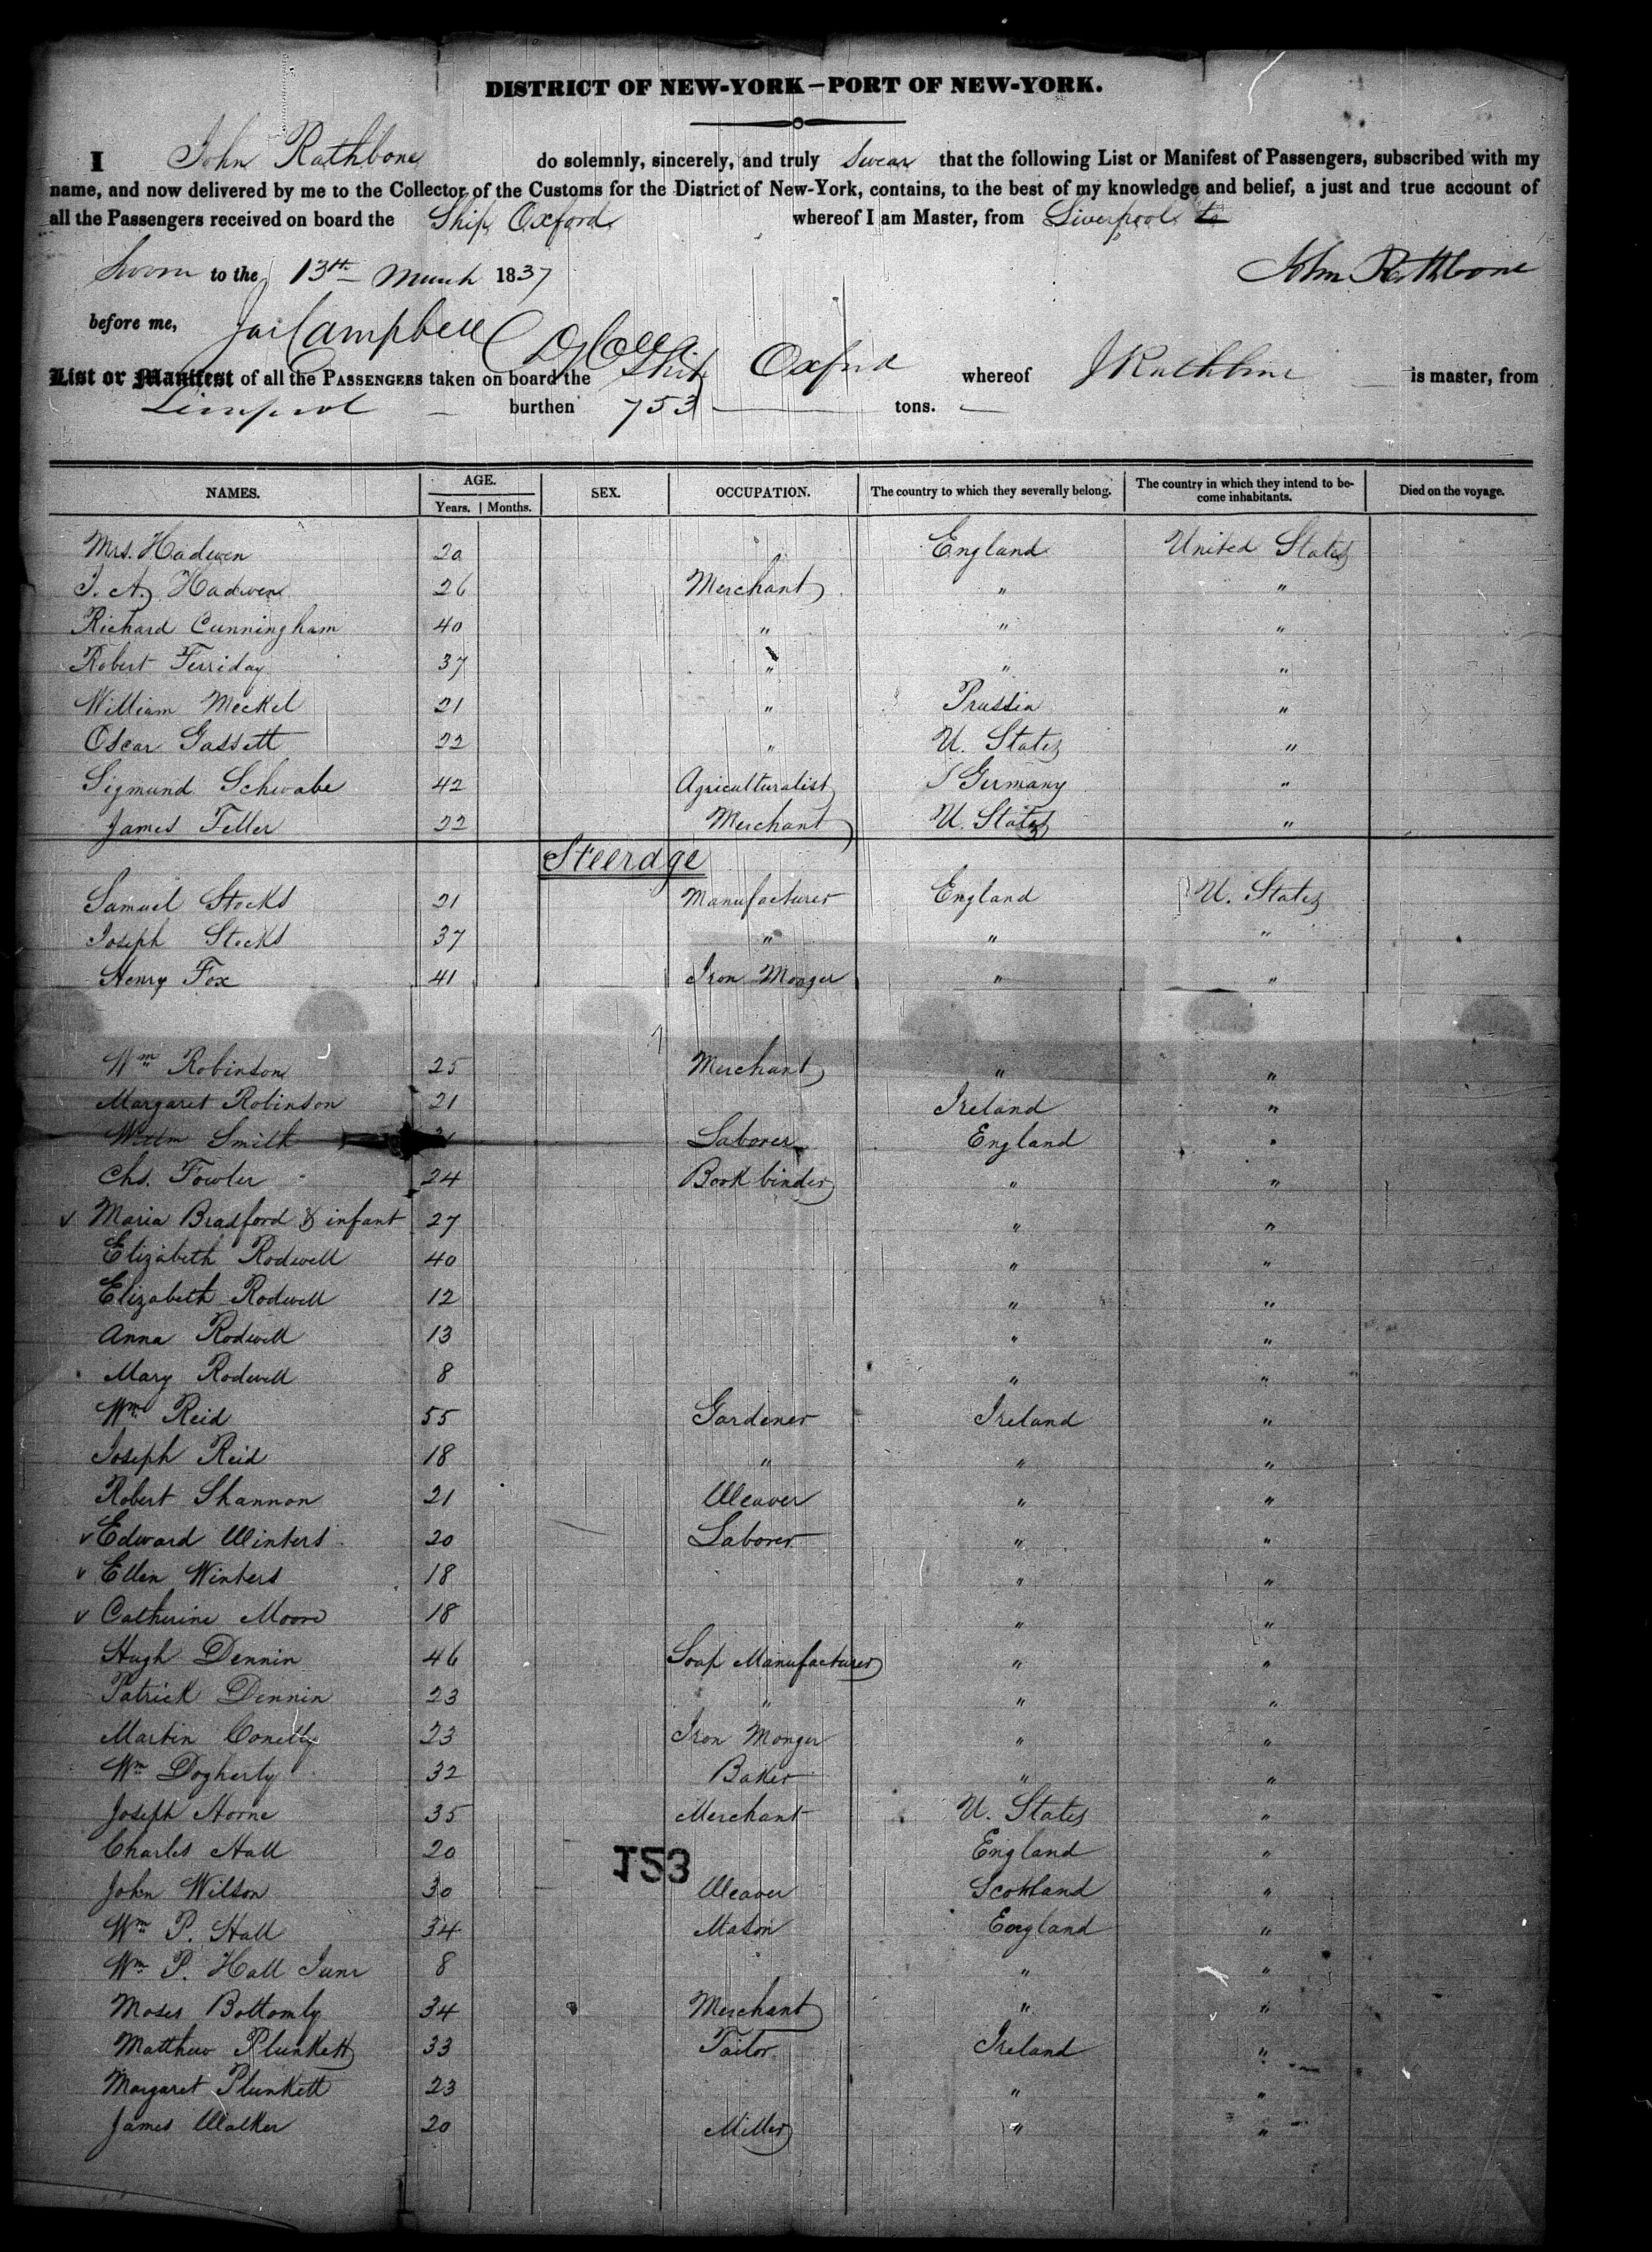 DISTRICT OF NEW-YORK—PORT OF NEW-YORK.
I John Rathbone do solemnly, sincerely, and truly Swear that the following List or Manifest of Passengers, subscribed with my
name, and now delivered by me to the Collector of the Customs for the District of New-York, contains, to the best of my knowledge and belief, a just and true account of
all the Passengers received on board the Ship Oxford whereof I am Master, from Liverpool to
Sworn to the 13th March 1837 John Rathbone
before me, Jas Campbell
List or Manifest of all the PASSENGERS taken on board the Ship Oxford whereof J Rathbone is master, from
Liverpool burthen 753 tons.
NAMES. AGE. SEX. OCCUPATION. The country to which they severally belong. The country in which they intend to be- Died on the voyage.
Years. Months. come inhabitants.
Mrs. Hadwen 20 England United States
I. A. Hadwen 26 Merchant " "
Richard Cunningham 40 " " "
Robert Ferriday 37 " " "
William Meckel 21 " Prussia "
Oscar Gassett 22 " U. States "
Sigmund Schwabe 42 Agriculturalist Germany "
James Feller 22 Merchant U. States "
Steerage
Samuel Stocks 21 Manufacturer England U. States
Joseph Stocks 37 " " "
Henry Fox 41 Iron Monger " "
Wm Robinson 25 Merchant " "
Margaret Robinson 21 Ireland "
Willm Smith 21 Laborer England "
Chs. Fowler 24 Book binder " "
v Maria Bradford & infant 27 " "
Elizabeth Rodwell 40 " "
Elizabeth Rodwell 12 " "
Anna Rodwell 13 " "
Mary Rodwell 8 " "
Wm Reid 55 Gardener Ireland "
Joseph Reid 18 " " "
Robert Shannon 21 Weaver " "
v Edward Winters 20 Laborer " "
v Ellen Winters 18 " "
v Catherine Moore 18 " "
Hugh Dennin 46 Soap Manufacturer " "
Patrick Dennin 23 " " "
Martin Conelly 23 Iron Monger " "
Wm Dogherty 32 Baker " "
Joseph Horne 35 Merchant U. States "
Charles Hall 20 England "
153
John Wilson 30 Weaver Scotland "
Wm P. Hall 34 Mason England "
Wm P. Hall Junr 8 " "
Moses Bottomly 34 Merchant " "
Matthew Plunkett 33 Tailor Ireland "
Margaret Plunkett 23 " "
James Walker 20 Miller " "